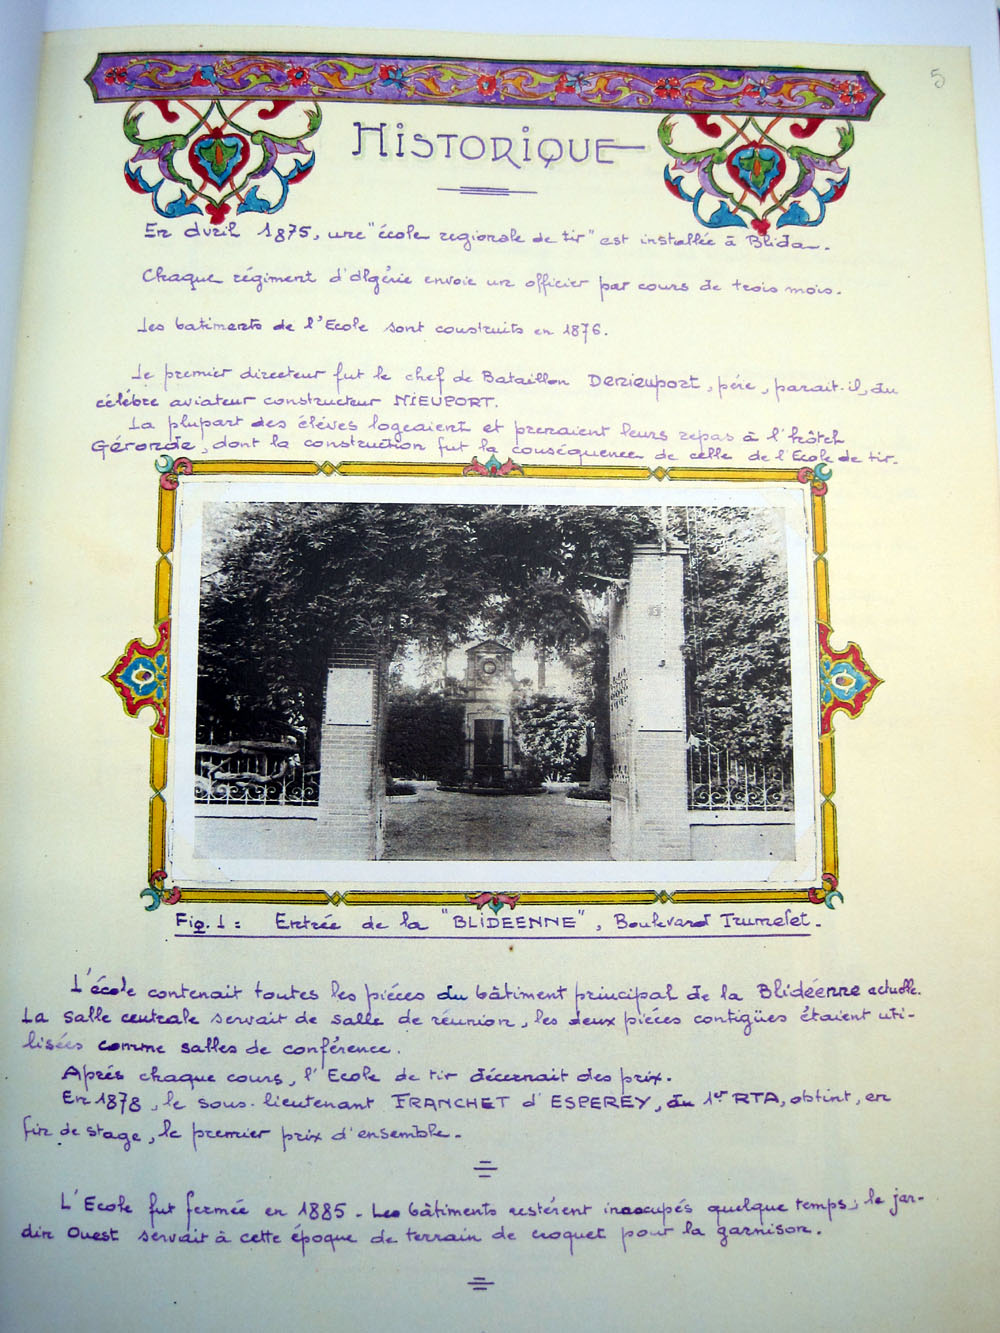 5
HISTORIQUE
En Avril 1875, une "école regionale de tir" est installée à Blida.
Chaque régiment d'Algérie envoie un officier par cours de trois mois.
Les batiments de l'Ecole sont construits en 1876.
Le premier directeur fut le chef de Bataillon DENIEUPORT, père, parait-il, du
célébre aviateur constructeur NIEUPORT.
La plupart des élèves logeaient et prenaient leurs repas à l'hôtel
Géronde, dont la construction fut la conséquence de celle de l'Ecole de tir.
Fig. 1 : Entrée de la "BLIDEENNE", Boulevard Trumelet.
L'école contenait toutes les piéces du bâtiment principal de la Blidéenne actuelle.
La salle centrale servait de salle de réunion, les deux piéces contigües étaient uti-
lisées comme salles de conférence.
Aprés chaque cours, l'Ecole de tir décernait des prix.
En 1878, le sous-lieutenant FRANCHET d'ESPEREY, du 1er RTA, obtint, en
fin de stage, le premier prix d'ensemble.
L'Ecole fut fermée en 1885. Les bâtiments restérent inoccupés quelque temps; le jar-
din Ouest servait à cette époque de terrain de croquet pour la garnison.